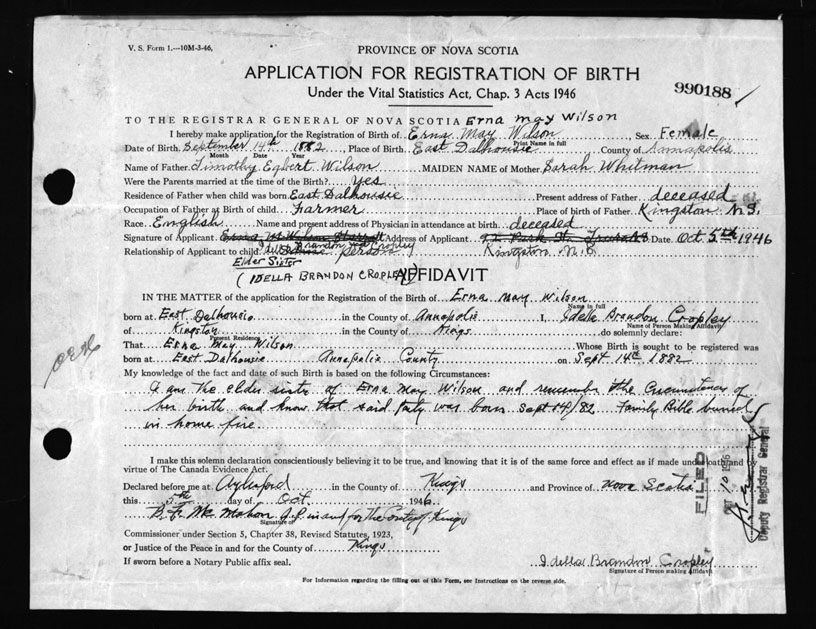 V. S. Form 1.—10M-3-46.
PROVINCE OF NOVA SCOTIA
APPLICATION FOR REGISTRATION OF BIRTH
Under the Vital Statistics Act, Chap. 3 Acts 1946
990188
TO THE REGISTRAR GENERAL OF NOVA SCOTIA Erna may Wilson
I hereby make application for the Registration of Birth of Erna May Wilson, Sex Female
Print Name in full
Date of Birth September 14th 1882, Place of Birth East Dalhousie County of Annapolis
Month Date Year
Name of Father Timothy Egbert Wilson MAIDEN NAME of Mother Sarah Whitman
Were the Parents married at the time of the Birth? yes
Residence of Father when child was born East Dalhousie Present address of Father deceased
Occupation of Father at Birth of child Farmer Place of birth of Father Kingston N.S.
Race English Name and present address of Physician in attendance at birth deceased
Signature of Applicant Address of Applicant Date Oct 5th 1946
Idella Brandon Cropley
Relationship of Applicant to child person Kingston N.S
Elder Sister
(IDELLA BRANDON CROPLEY)
AFFIDAVIT
IN THE MATTER of the application for the Registration of the Birth of Erna May Wilson
Name in full
born at East Dalhousie in the County of Annapolis I, Idella Brandon Cropley
Name of Person Making Affidavit
of Kingston in the County of Kings do solemnly declare:
Present Residence
That Erna May Wilson Whose Birth is sought to be registered was
born at East Dalhousie Annapolis County on Sept 14th 1882
My knowledge of the fact and date of such Birth is based on the following Circumstances:
I am the elder sister of Erna May Wilson and remember the Circumstances of
her birth and know that said party was born Sept 14/82 Family Bible burned
in home fire
I make this solemn declaration conscientiously believing it to be true, and knowing that it is of the same force and effect as if made under oath and
virtue of The Canada Evidence Act.
Declared before me at Aylesford in the County of Kings and Province of Nova Scotia
this 5th day of Oct. 1946
B. F. McMahon J.P. in and for the County of Kings
Signature of
Commissioner under Section 5, Chapter 38, Revised Statutes, 1923,
or Justice of the Peace in and for the County of Kings
If sworn before a Notary Public affix seal.
Idella Brandon Cropley
Signature of Person making Affidavit
For Information regarding the filling out of this Form, see Instructions on the reverse side.
FILED
Deputy Registrar General